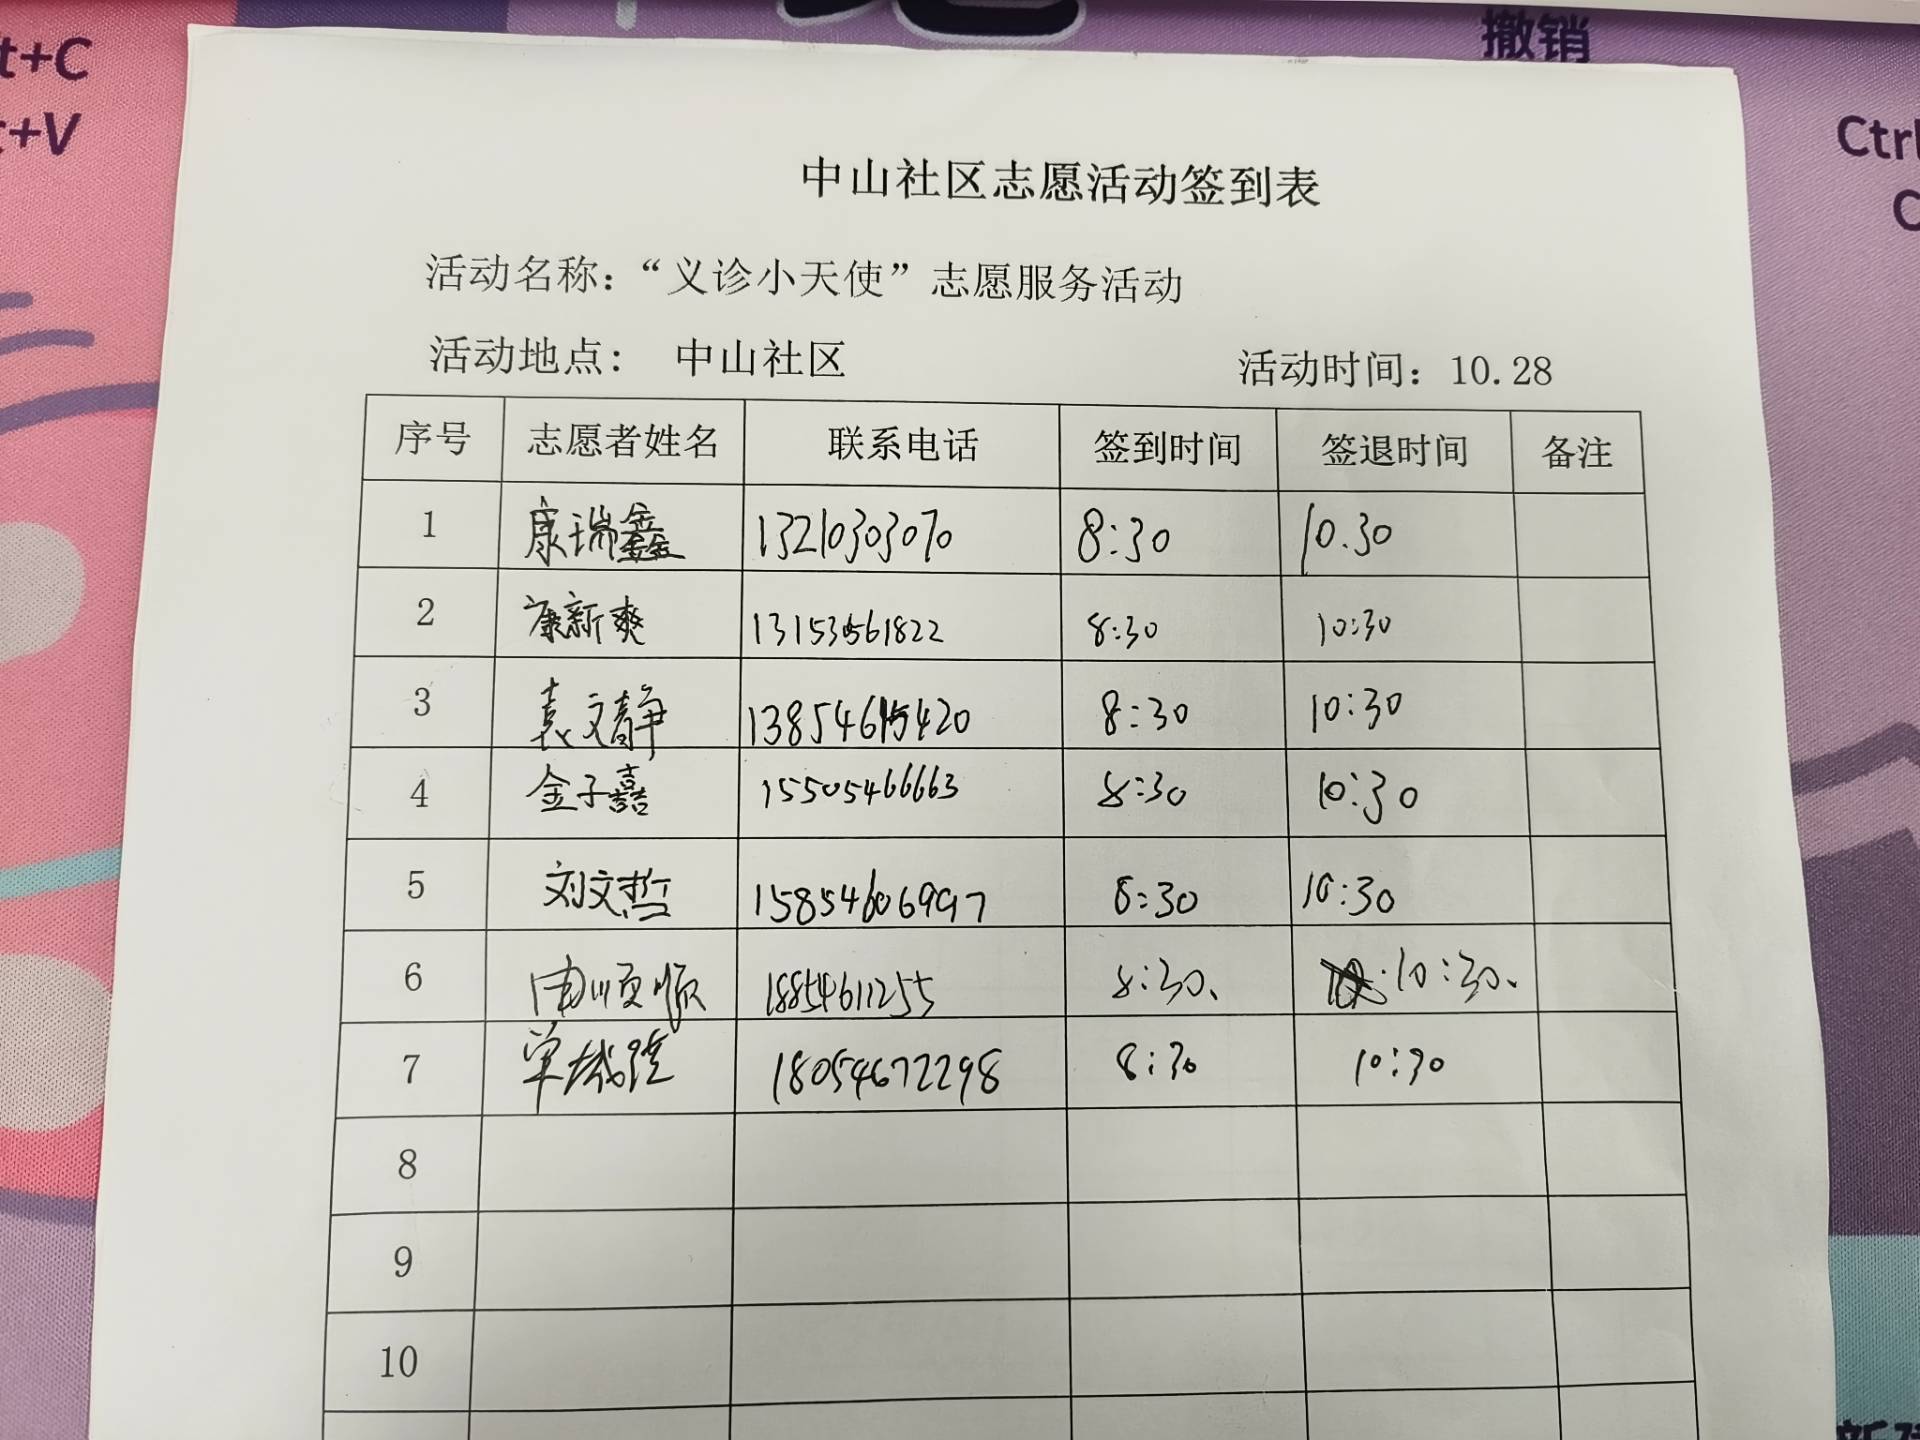 t+C
t+V
撤销
Ctrl
C
中山社区志愿活动签到表
活动名称：“义诊小天使”志愿服务活动
活动地点： 中山社区 活动时间：10.28
序号 志愿者姓名 联系电话 签到时间 签退时间 备注
1 康瑞鑫 13210303070 8:30 10.30
2 康新爽 8:30 10:30
3 袁文静 8:30 10:30
4 金子嘉 15505466663 8:30 10:30
5 刘文哲 15854606997 8:30 10:30
6 18854611255 8:30、 10:30、
7 18054672298 8:30 10:30
8
9
10